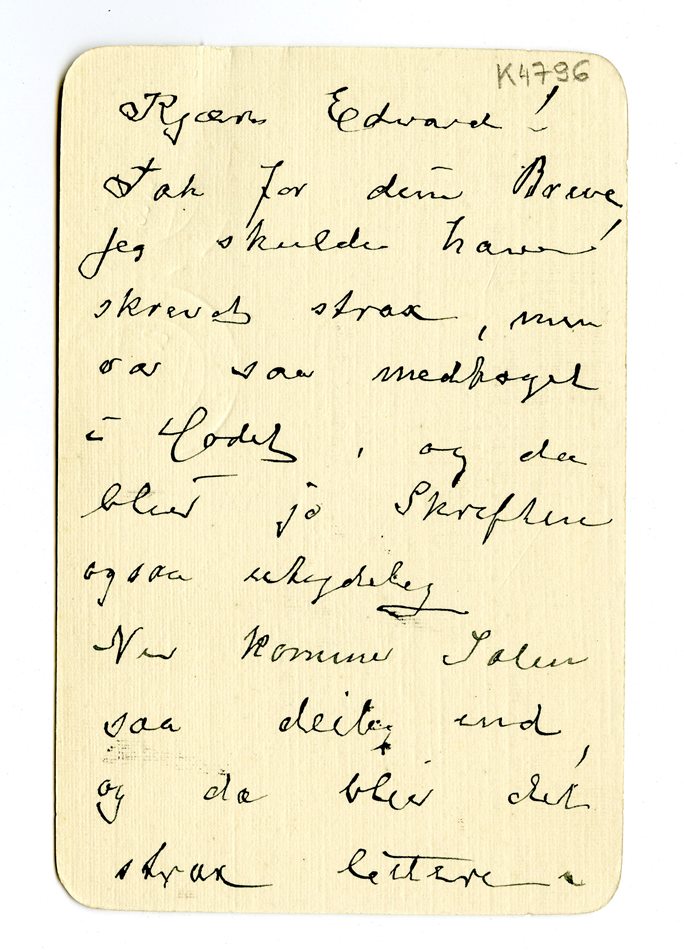 K4796
Kjære Edvard!
Tak for dine Breve,
jeg skulde have
skrevet strax, men
var saa medtaget
i Hodet, og da
bliver jo Skriften
ogsaa utydelig
Nu kommer Solen
saa deilig ind,
og da blir det
strax lettere